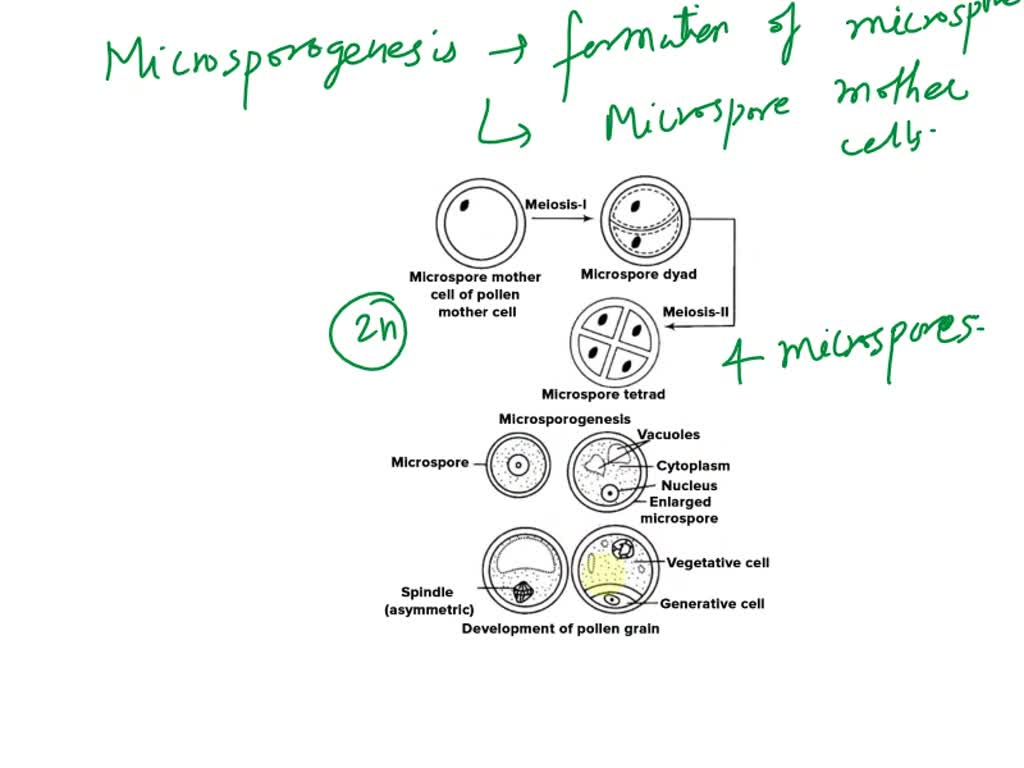 Microsporogenesis → formation of
↳ Microspore mother
cells.
Meiosis-I
Microspore mother
cell of pollen
mother cell
Microspore dyad
2n
Meiosis-II
4 microspores.
Microspore tetrad
Microsporogenesis
Vacuoles
Microspore
Cytoplasm
Nucleus
Enlarged
microspore
Vegetative cell
Spindle
(asymmetric)
Generative cell
Development of pollen grain